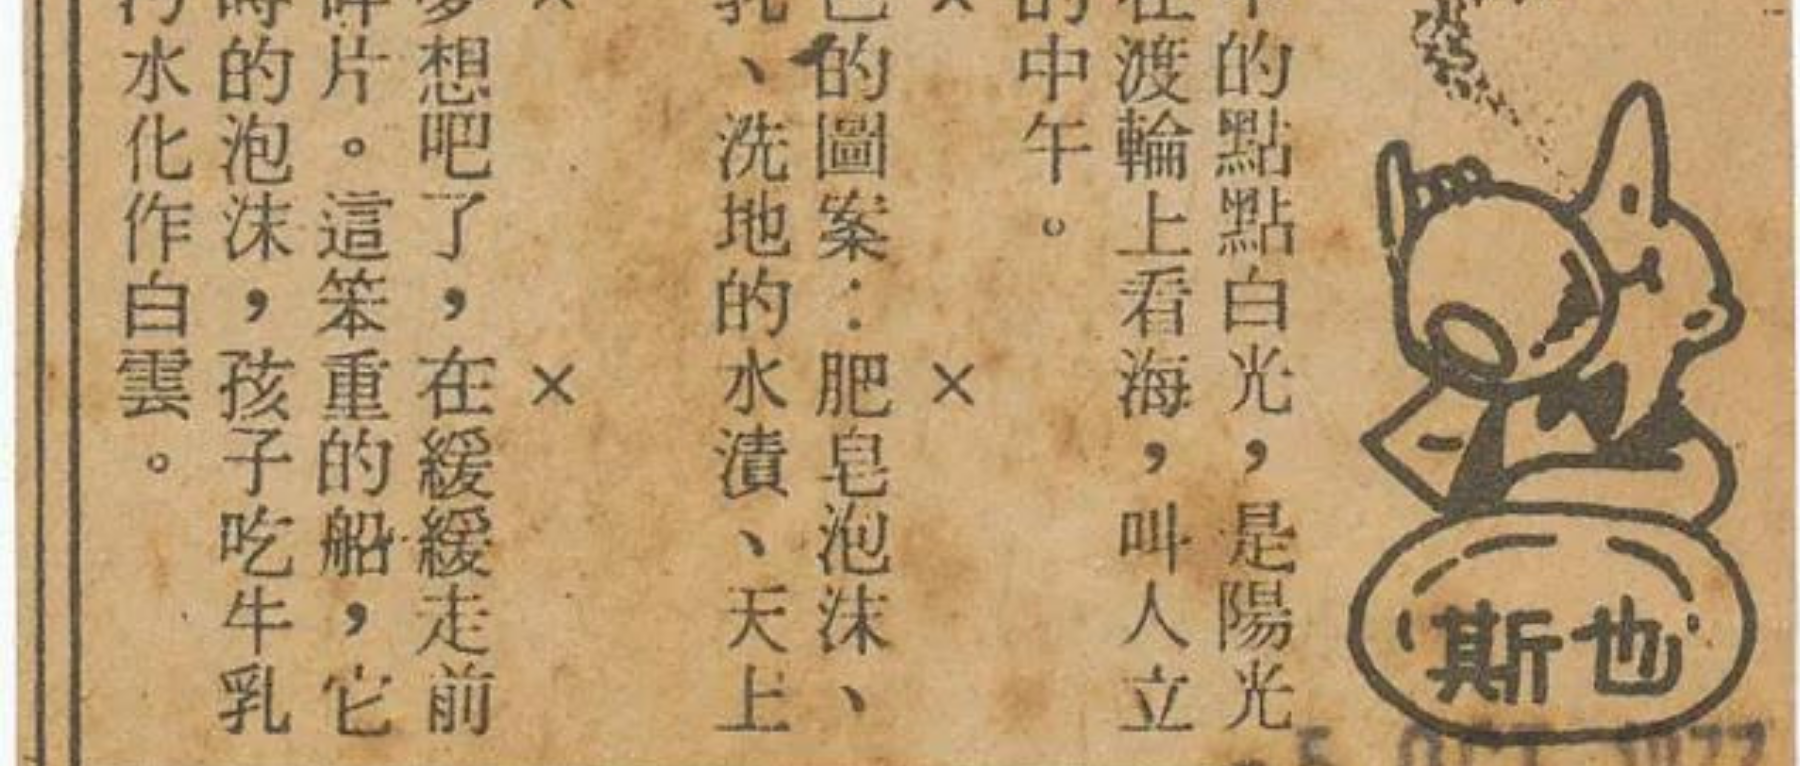 也斯
的點點白光，是陽光
在渡輪上看海，叫人立
的中午。
× ×
色的圖案：肥皂泡沫、
乳、洗地的水漬、天上
× ×
夢想吧了，在緩緩走前
碎片。這笨重的船，它
時的泡沫，孩子吃牛乳
污水化作白雲。
5 OCT 1977